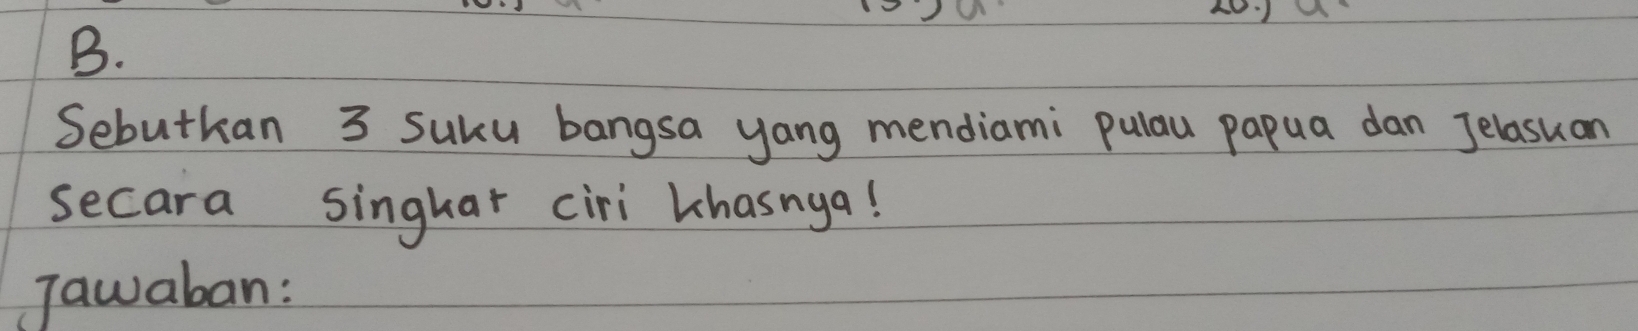 B.
Sebutkan 3 suku bangsa yang mendiami pulau papua dan Jelaskan
secara singkat ciri khasnya!
Jawaban: